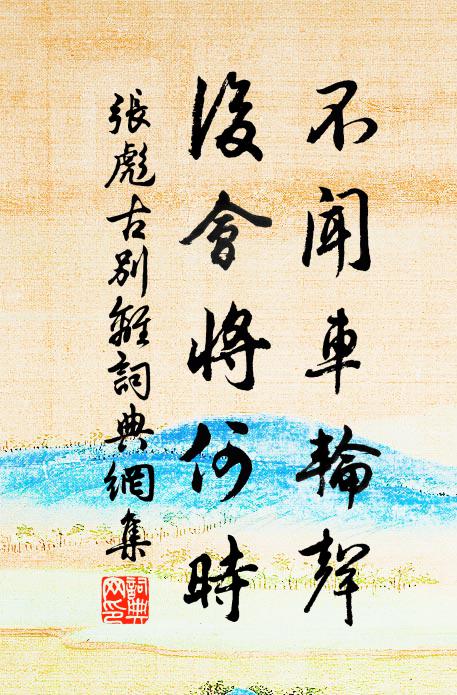 不聞車輪聲
後會將何時
張彪古別離詞典網集
詞典